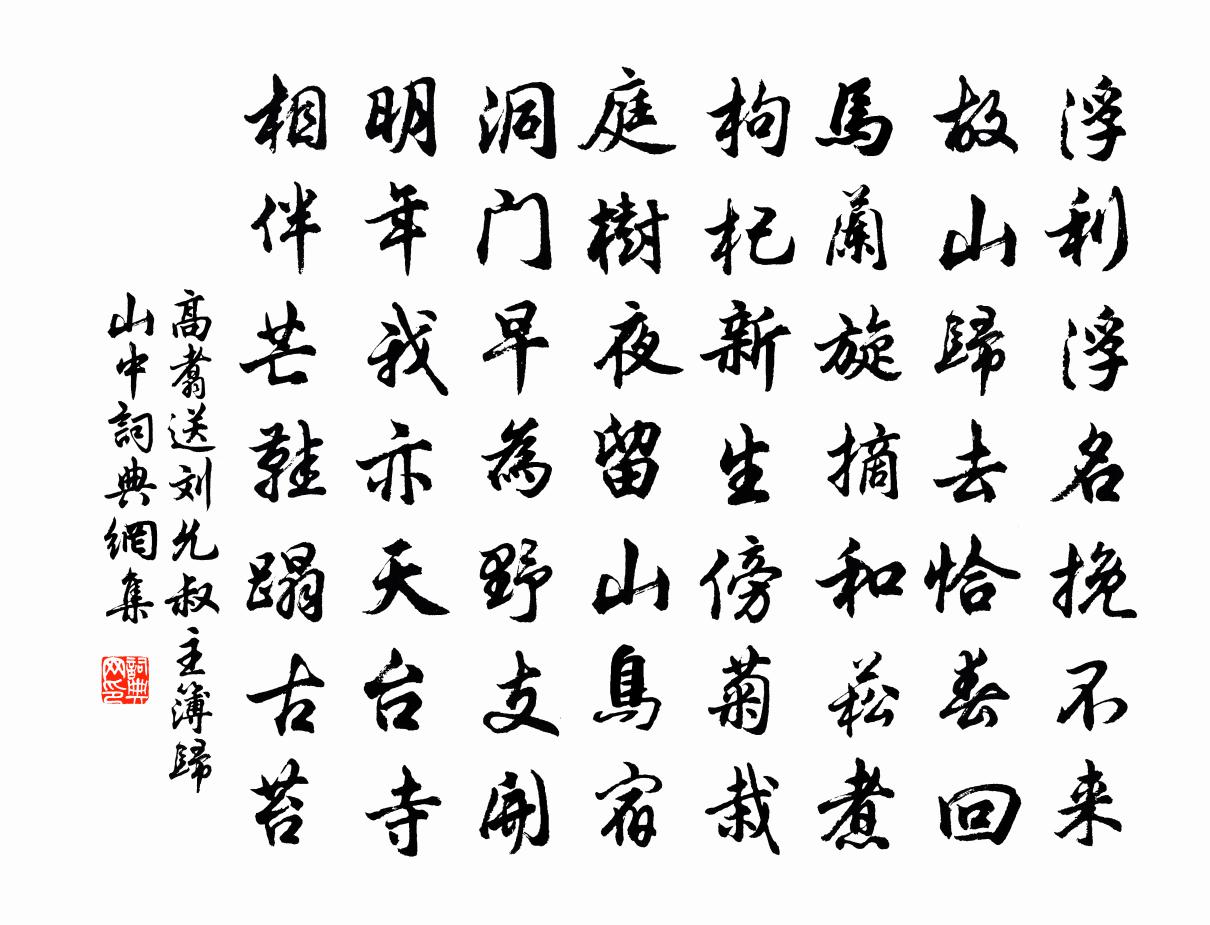 浮利浮名挽不来
故山歸去恰春回
馬蘭旋摘和菘煮
枸杞新生傍菊栽
庭樹夜留山鳥宿
洞门早為野支開
明年我亦天台寺
相伴芒鞋蹋古苔
高翥送刘允叔主簿歸
山中詞典網集
詞典网印